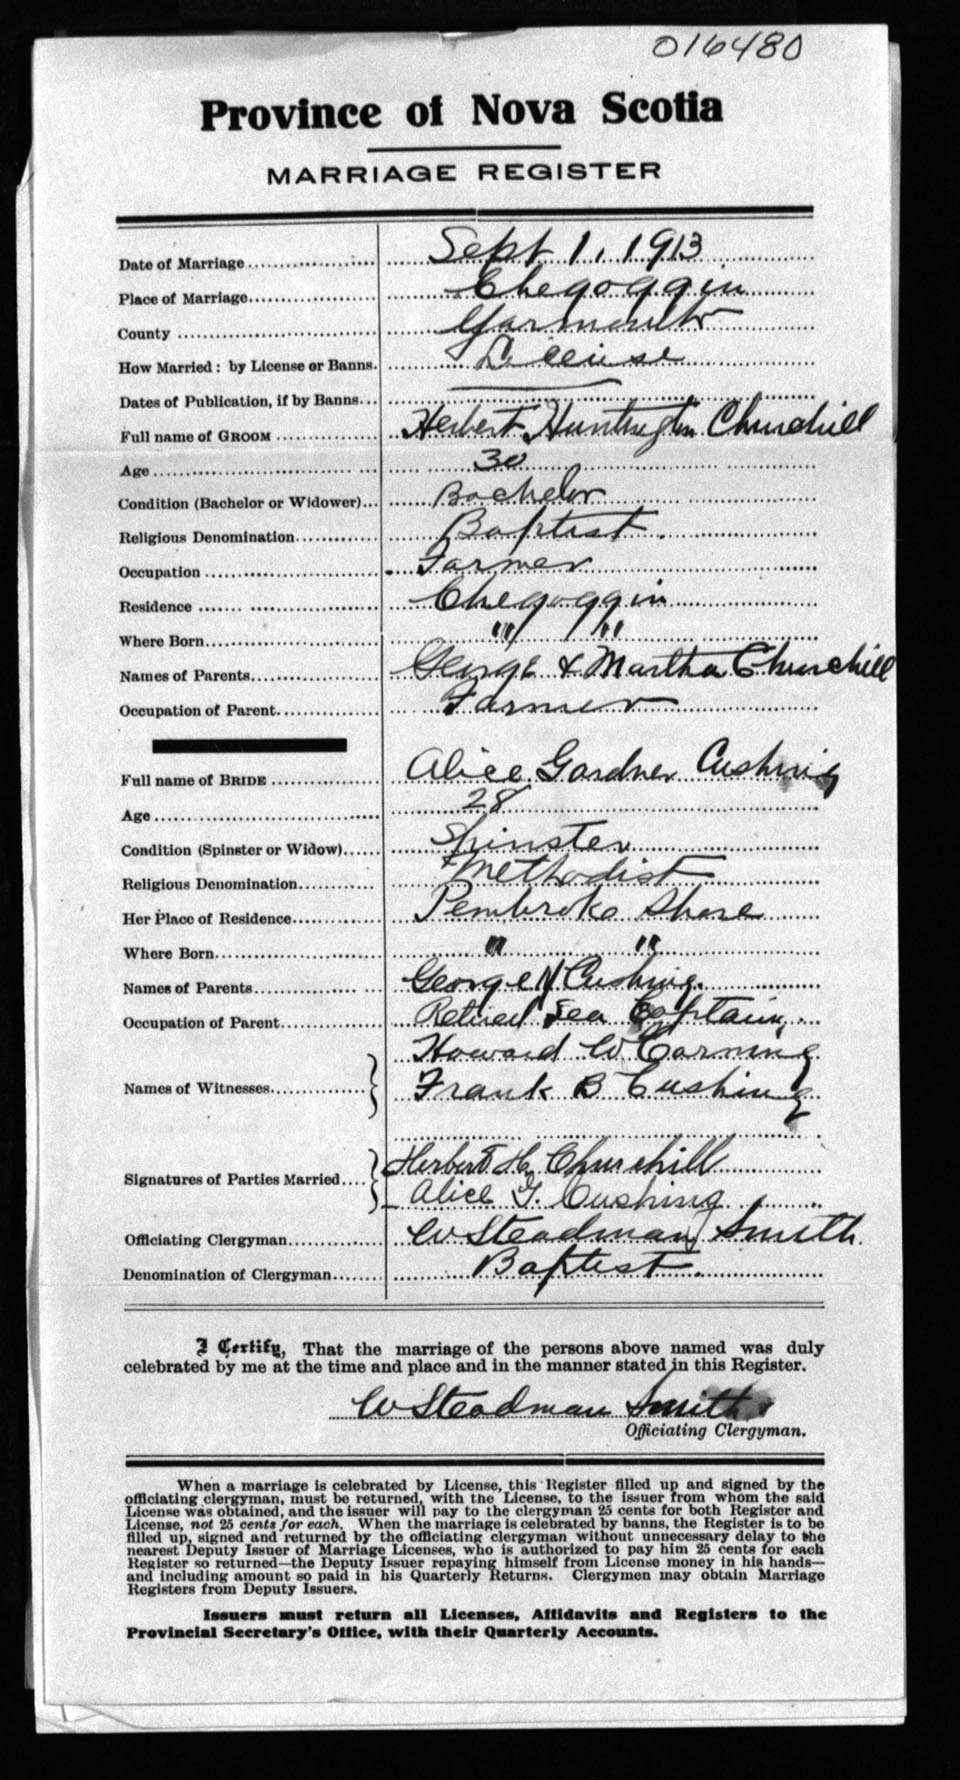 016480
Province of Nova Scotia
MARRIAGE REGISTER
Date of Marriage Sept 1, 1913
Place of Marriage Chegoggin
County Yarmouth
How Married: by License or Banns. License
Dates of Publication, if by Banns
Full name of GROOM Herbert Huntington Churchill
Age 30
Condition (Bachelor or Widower) Bachelor
Religious Denomination Baptist
Occupation Farmer
Residence Chegoggin
Where Born " "
Names of Parents George & Martha Churchill
Occupation of Parent Farmer
Full name of BRIDE Alice Gardner Cushing
Age 28
Condition (Spinster or Widow) Spinster
Religious Denomination Methodist
Her Place of Residence Pembroke Shore
Where Born " "
Names of Parents George Cushing.
Occupation of Parent Retired Sea Captain
Howard W Corning
Names of Witnesses Frank B Cushing
Herbert H. Churchill
Signatures of Parties Married
Alice G. Cushing
Officiating Clergyman W Steadman Smith.
Denomination of Clergyman Baptist.
I Certify, That the marriage of the persons above named was duly
celebrated by me at the time and place and in the manner stated in this Register.
W Steadman Smith
Officiating Clergyman.
When a marriage is celebrated by License, this Register filled up and signed by the
officiating clergyman, must be returned, with the License, to the issuer from whom the said
License was obtained, and the issuer will pay to the clergyman 25 cents for both Register and
License, not 25 cents for each. When the marriage is celebrated by banns, the Register is to be
filled up, signed and returned by the officiating clergyman without unnecessary delay to the
nearest Deputy Issuer of Marriage Licenses, who is authorized to pay him 25 cents for each
Register so returned—the Deputy Issuer repaying himself from License money in his hands—
and including amount so paid in his Quarterly Returns. Clergymen may obtain Marriage
Registers from Deputy Issuers.
Issuers must return all Licenses, Affidavits and Registers to the
Provincial Secretary's Office, with their Quarterly Accounts.